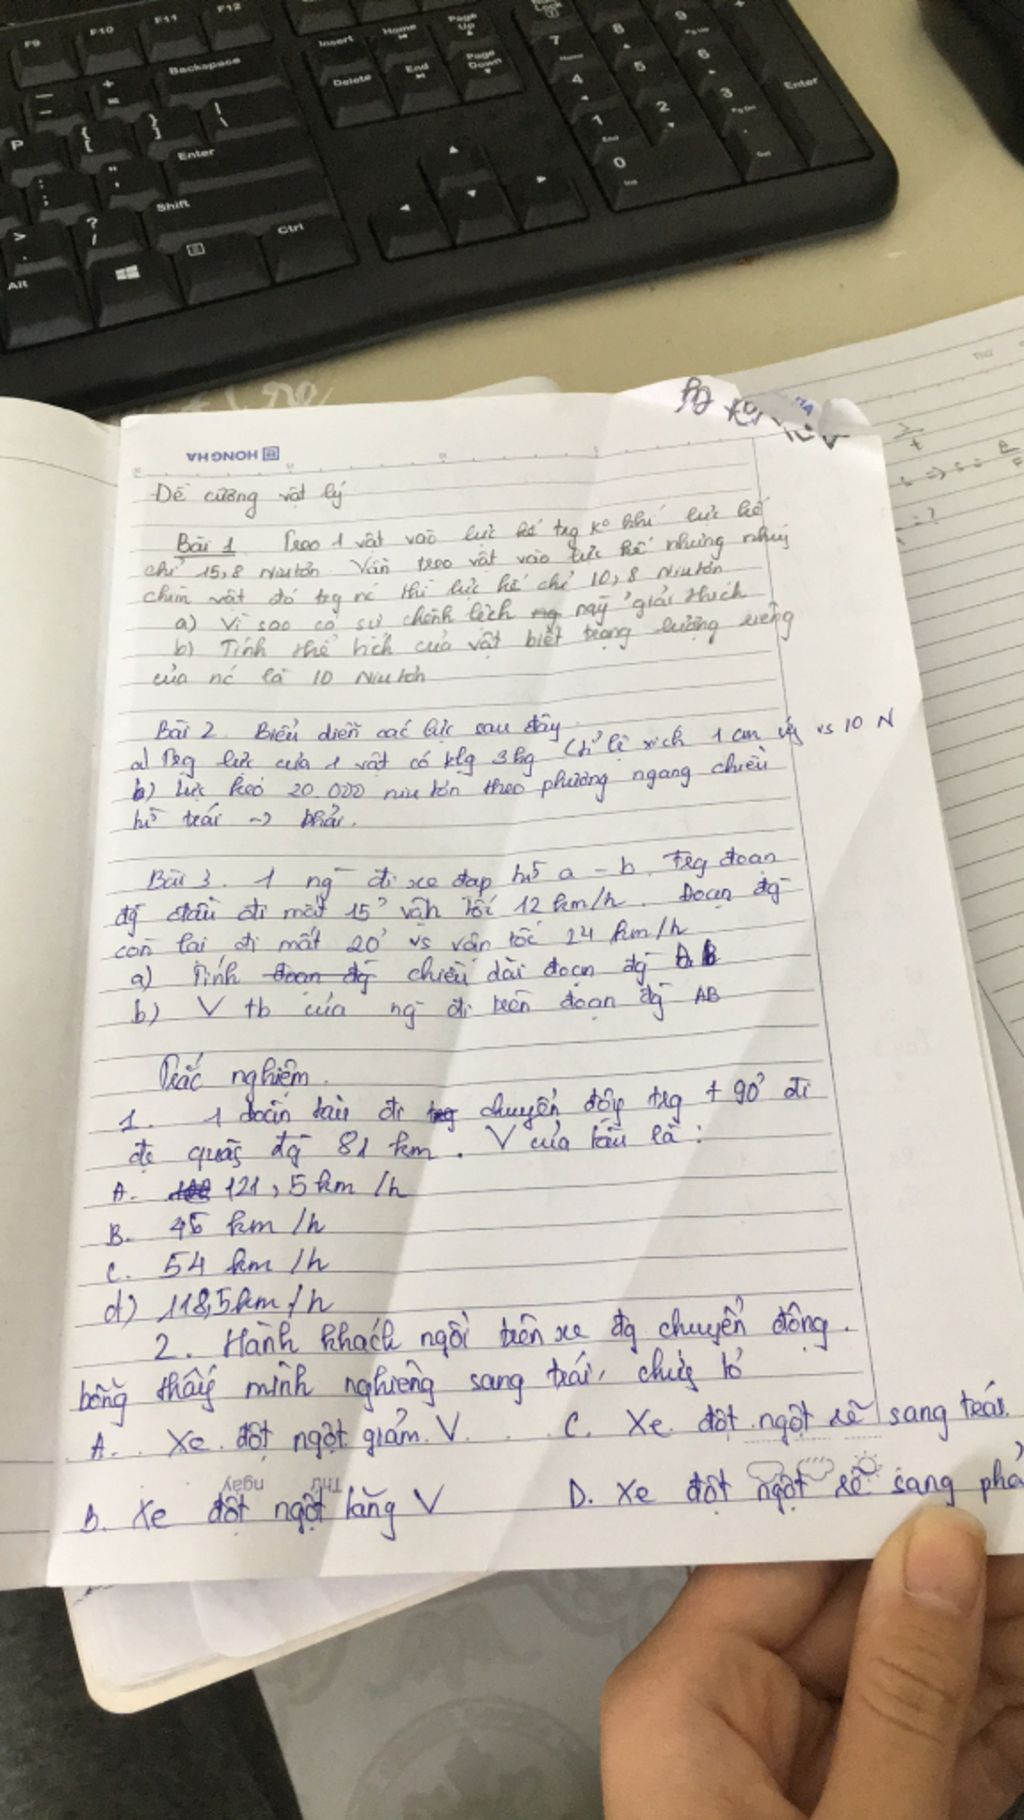 F9 F10 F11 F12
Insert Home Page Up
Backspace
Delete End Page Down
Enter
Shift
Ctrl
Alt
HONG HA
Đề cương vật lý
Bài 1 Treo 1 vật vào lực kế trg ko khí lực kế
chỉ 15,8 Niutơn Vẫn treo vật vào lực kế nhưng nhúng
chìm vật đó trg nc thì lực kế chỉ 10,8 Niutơn
a) Vì sao có sự chênh lệch này giải thích
b) Tính thể tích của vật biết trọng lượng riêng
của nc là 10 Niutơn
Bài 2. Biểu diễn các lực sau đây
a) Trg lực của 1 vật có klg 3kg (tỉ lệ xích 1 cm ứg vs 10 N
b) lực kéo 20 000 niutơn theo phương ngang chiều
từ trái -> phải.
Bài 3. 1 ng đi xe đạp từ a - b. Trg đoạn
đg đầu đi mất 15' vận tốc 12 km/h. Đoạn đg
còn lại đi mất 20' vs vận tốc 24 km/h
a) Tính đoạn đg chiều dài đoạn đg AB
b) V tb của ng đi trên đoạn đg AB
Trắc nghiệm.
1. 1 đoàn tàu đi trg chuyển độg trg t 90' đi
đc quãg đg 81 km. V của tàu là:
A. 121,5 km/h
B. 45 km/h
C. 54 km/h
d) 118,5 km/h
2. Hành khách ngồi trên xe đg chuyển động.
bỗng thấy mình nghiêng sang trái, chứg tỏ
A. Xe đột ngột giảm V. C. Xe đột ngột rẽ sang trái.
Thứ ngày
B. Xe đột ngột tăng V D. Xe đột ngột rẽ sang phả